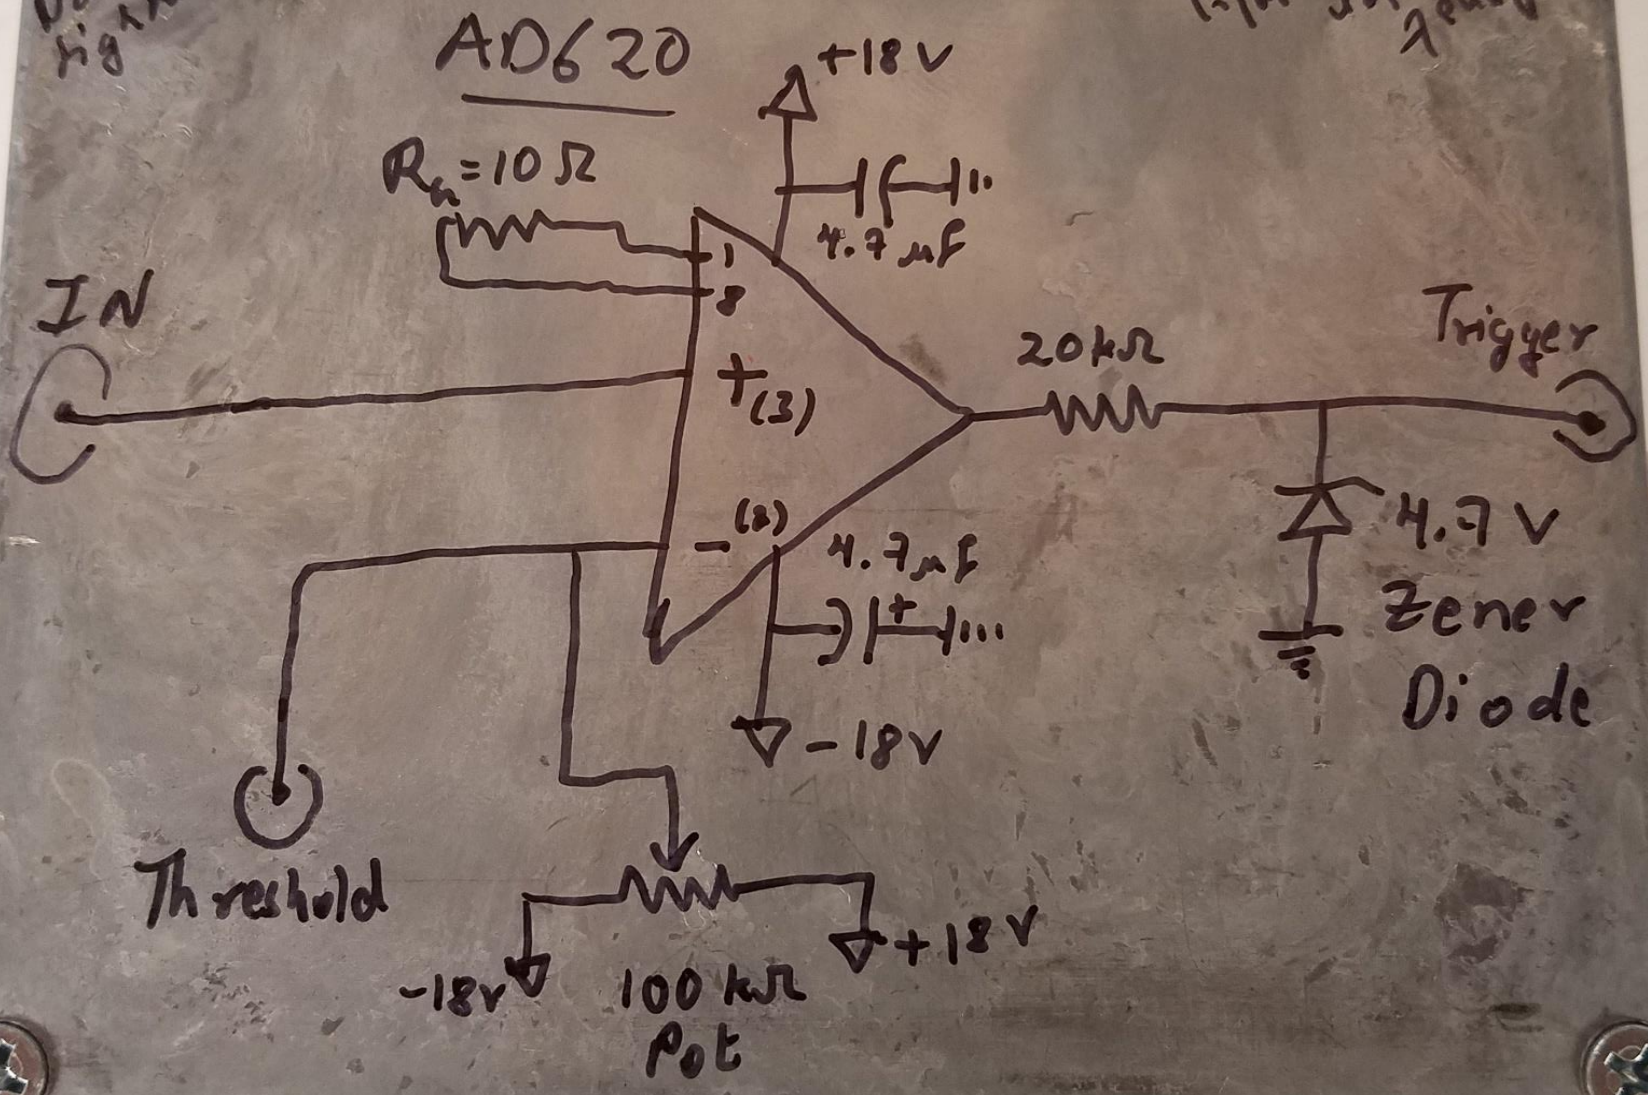 AD620
+18V
RG=10Ω
4.7 μF
1
8
IN
+(3)
20kΩ
Trigger
-(2)
4.7μF
+
4.7V
Zener
Diode
-18V
Threshold
-18V
+18V
100 kΩ
Pot